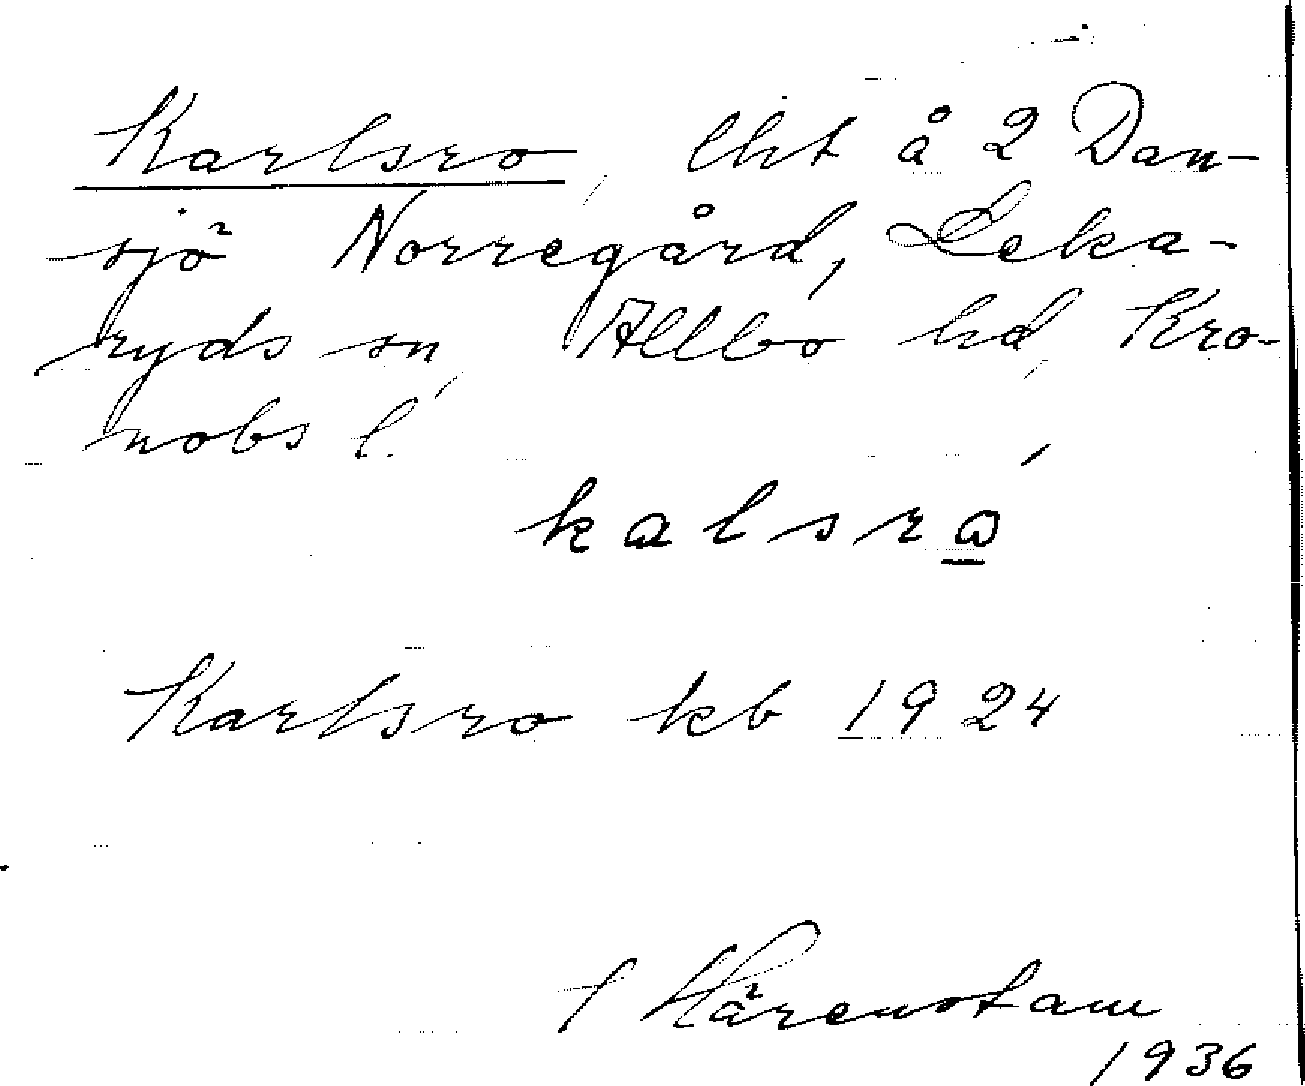 Karlsro, lht å 2 Dan-
sjö Norregård, Leka-
ryds sn, Allbo hd, Kro-
nobs l.
kalsrω
Karlsro kb 1924
Härenstam
1936